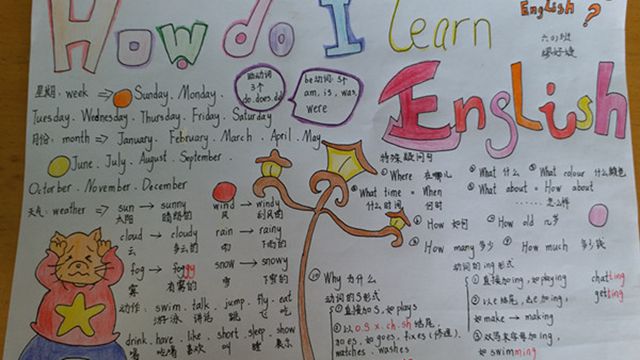 How do I learn
English
English ?
星期: week ⇒ Sunday. Monday.
Tuesday. Wednesday. Thursday. Friday. Saturday
月份: month ⇒ January. February. March. April. May
June. July. August. September.
Octorber. November. December
助动词
3个
do.does.did
be动词: 5个
am, is, was,
were
天气: weather ⇒ sun → sunny
太阳 晴朗的
wind → windy
风 刮风的
cloud → cloudy
云 多云的
rain → rainy
雨 下雨的
fog → foggy
雾 有雾的
snow → snowy
雪 下雪的
动作: swim. talk. jump. fly. eat
游泳 讲话 跳 飞 吃
drink. have. like. short. sleep. show
喝 吃喝 喜欢 睡 展示
特殊疑问句
Where 在哪儿
What 什么
What colour 什么颜色
What time = When
什么时间 何时
What about = How about
......怎么样
How 如何
How old 几岁
How many 多少
How much 多少钱
Why 为什么
动词的S形式
①直接加S, 如plays
②以O.S.X.ch.sh结尾,
加es, 如goes, fixes
watches. washes
动词的ing形式
①直接加ing, 如playing
②以e结尾, 去e加ing,
如 make → making
③双写末字母加ing,
如 swimming
chatting
getting